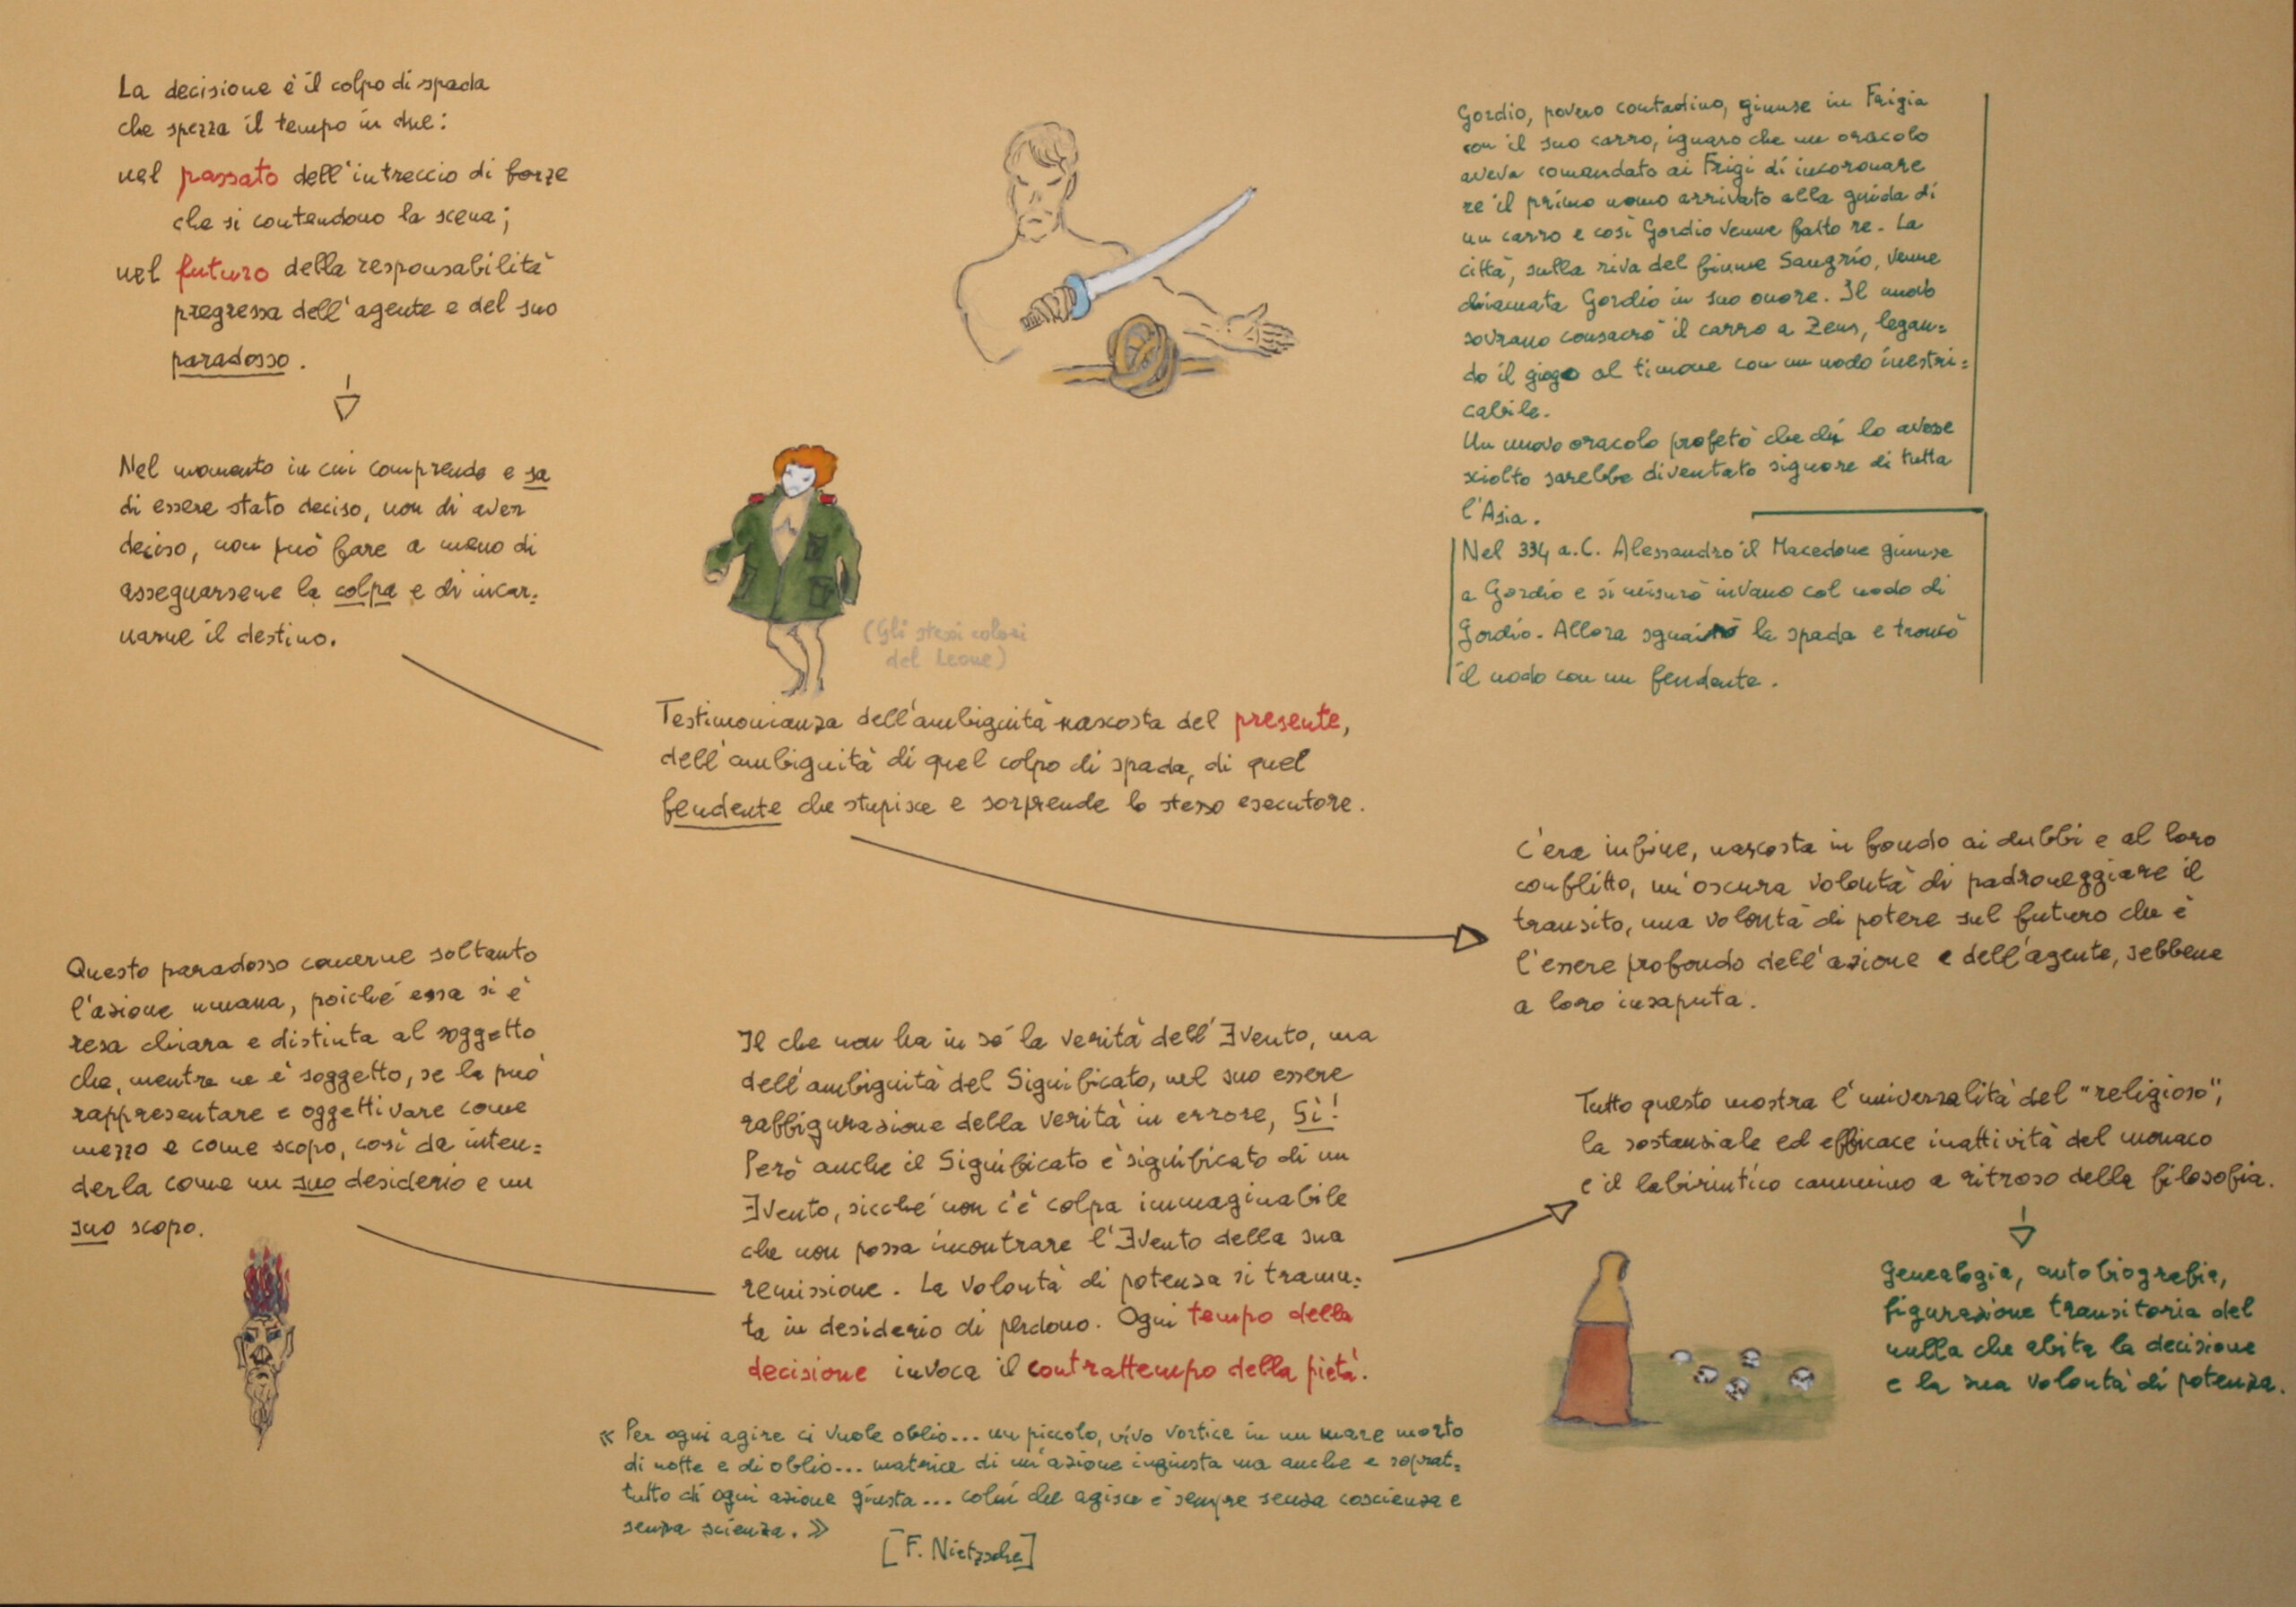 La decisione è il colpo di spada
che spezza il tempo in due:
nel passato dell'intreccio di forze
che si contendono la scena;
nel futuro della responsabilità
pregressa dell'agente e del suo
paradosso.
Nel momento in cui comprende e sa
di essere stato deciso, non di aver
deciso, non può fare a meno di
assegnarsene la colpa e di incar=
narne il destino.
(Gli stessi colori
del Leone)
Testimonianza dell'ambiguità nascosta del presente,
dell'ambiguità di quel colpo di spada, di quel
fendente che stupisce e sorprende lo stesso esecutore.
Gordio, povero contadino, giunse in Frigia
con il suo carro, iguaro che un oracolo
aveva comandato ai Frigi di incoronare
re il primo uomo arrivato alla guida di
un carro e così Gordio venne fatto re. La
città, sulla riva del fiume Sangrio, venne
chiamata Gordio in suo onore. Il nuovo
sovrano consacrò il carro a Zeus, legan=
do il giogo al timone con un nodo inestri=
cabile.
Un nuovo oracolo profetò che chi lo avesse
sciolto sarebbe diventato signore di tutta
l'Asia.
Nel 334 a.C. Alessandro il Macedone giunse
a Gordio e si misurò invano col nodo di
Gordio. Allora sguainò la spada e troncò
il nodo con un fendente.
C'era infine, nascosta in fondo ai dubbi e al loro
conflitto, un'oscura volontà di padroneggiare il
transito, una volontà di potere sul futuro che è
l'essere profondo dell'azione e dell'agente, sebbene
a loro insaputa.
Questo paradosso concerne soltanto
l'azione umana, poiché essa si è
resa chiara e distinta al soggetto
che, mentre ne è soggetto, se la può
rappresentare e oggettivare come
mezzo e come scopo, così da inten=
derla come un suo desiderio e un
suo scopo.
Il che non ha in sé la verità dell'Evento, ma
dell'ambiguità del Significato, nel suo essere
raffigurazione della verità in errore, Sì!
Però anche il Significato è significato di un
Evento, sicché non c'è colpa immaginabile
che non possa incontrare l'Evento della sua
remissione. La volontà di potenza si tramu=
ta in desiderio di perdono. Ogni tempo della
decisione invoca il contrattempo della pietà.
Tutto questo mostra l'universalità del "religioso",
la sostanziale ed efficace inattività del monaco
e il labirintico cammino a ritroso della filosofia.
Genealogia, autobiografia,
figurazione transitoria del
nulla che abita la decisione
e la sua volontà di potenza.
« Per ogni agire ci vuole oblio... un piccolo, vivo vortice in un mare morto
di notte e di oblio... matrice di un'azione ingiusta ma anche e soprat=
tutto di ogni azione giusta... colui che agisce è sempre senza coscienza e
senza scienza. »
[F. Nietzsche]